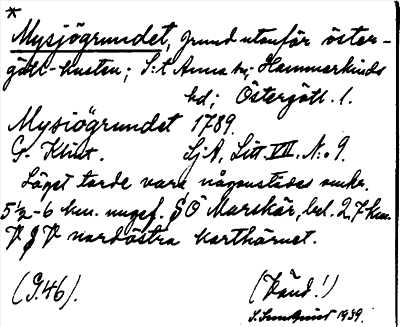 *
Mysjögrundet, grund utanför öster-
götl-kusten; S:t Anna sn; Hammarkinds
hd; Östergötl. l.
Mysjögrundet 1789.
G. Klint. SjA, Litt. VII. N:o 9.
Läget torde vara någonstädes omkr.
5½-6 km. ungef. SÖ Marskär, bel. 2,7 km.
nordöstra karthörnet.
(S.46). (Vänd!)
S. Sundquist 1939.